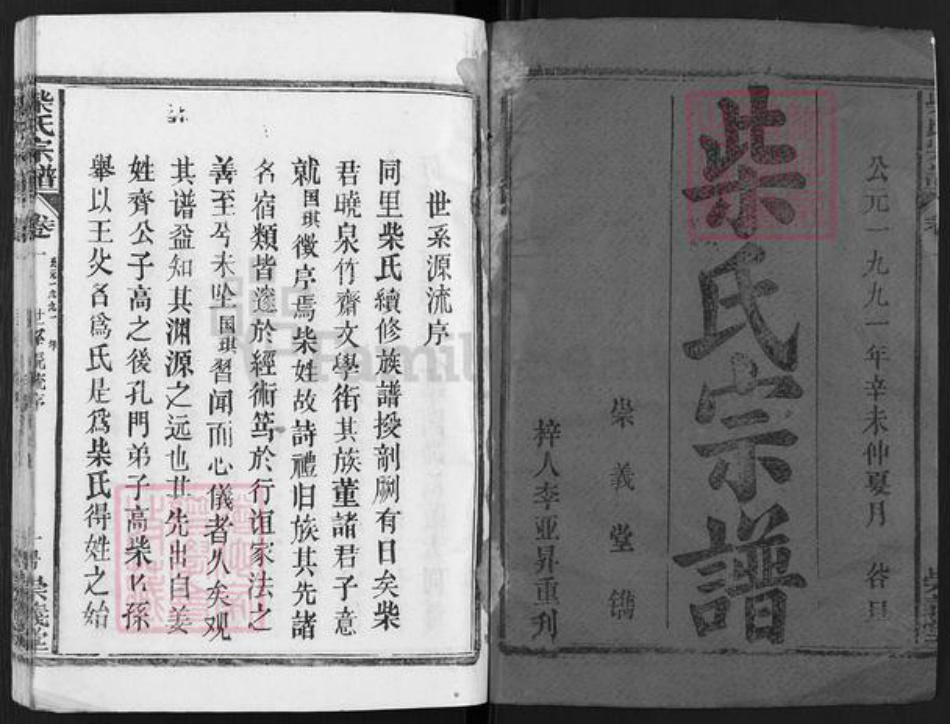 公元一九九一年辛未仲夏月 谷旦
柴氏宗譜
崇義堂鐫
梓人李亚昇重刊
世系源流序
同里柴氏續修族譜授剞劂有日矣柴
君曉泉竹齋文學銜其族董諸君子意
就国琪徵序焉柴姓故詩禮旧族其先諸
名宿類皆邃於經術篤於行谊家法之
善至兮未坠国琪習闻而心儀者久矣观
其谱益知其渊源之远也其先出自姜
姓齊公子高之後孔門弟子高柴孫
舉以王父名爲氏是爲柴氏得姓之始
柴氏宗譜 卷一 世系源流序 崇義堂